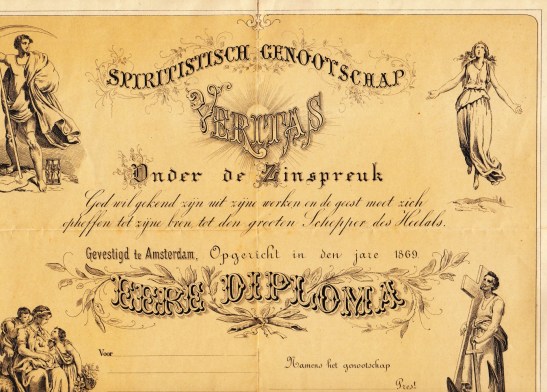 SPIRITISTISCH GENOOTSCHAP
VERITAS
Onder de Zinspreuk
God wil gekend zijn uit zijne werken en de geest moet zich
opheffen tot zijne bron tot den grooten Schepper des Heelals.
Gevestigd te Amsterdam, Opgericht in den jare 1869
EERE DIPLOMA
Voor
Namens het genootschap
Prest